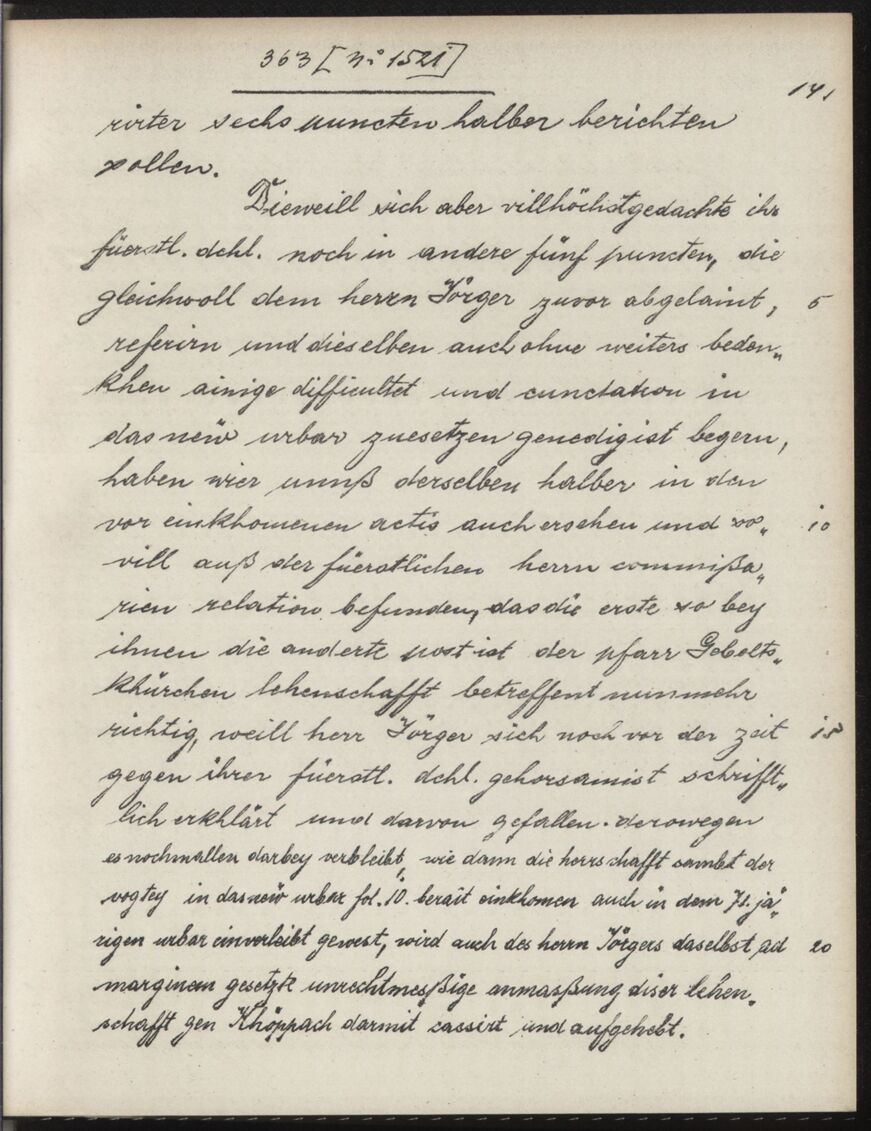 363 [nº 1521]
141
rirter sechs puncten halber berichten
sollen.
Dieweill sich aber villhöchstgedachte ihr
füerstl. dchl. noch in andere fünf puncten, die
gleichwoll dem herrn Jörger zuvor abgelaint, 5
referirn und dieselben auch ohne weiters beden„
khen ainige difficultet und cunctation in
das new urbar zuesetzen genedigist begern,
haben wier unnß derselben halber in den
vor einkhomenen actis auch ersehen und so„ 10
vill auß der füerstlichen herrn commißa„
rien relation befunden, das die erste so bey
ihnen die anderte post ist der pfarr Gebolts„
khürchen lehenschafft betreffent nunmehr
richtig, weill herr Jörger sich noch vor der zeit 15
gegen ihrer füerstl. dchl. gehorsamist schrifft„
lich erkhlärt und darvon gefallen. derowegen
es nochmallen darbey verbleibt, wie dann die herrschafft sambt der
vogtey in das new urbar fol. 10. berait einkhomen auch in dem 71. jä„
rigen urbar einverleibt gewest, wird auch des herrn Jörgers daselbst ad 20
marginem gesetzte unrechtmeßige anmaßung diser lehen„
schafft gen Khöppach darmit cassirt und aufgehebt.